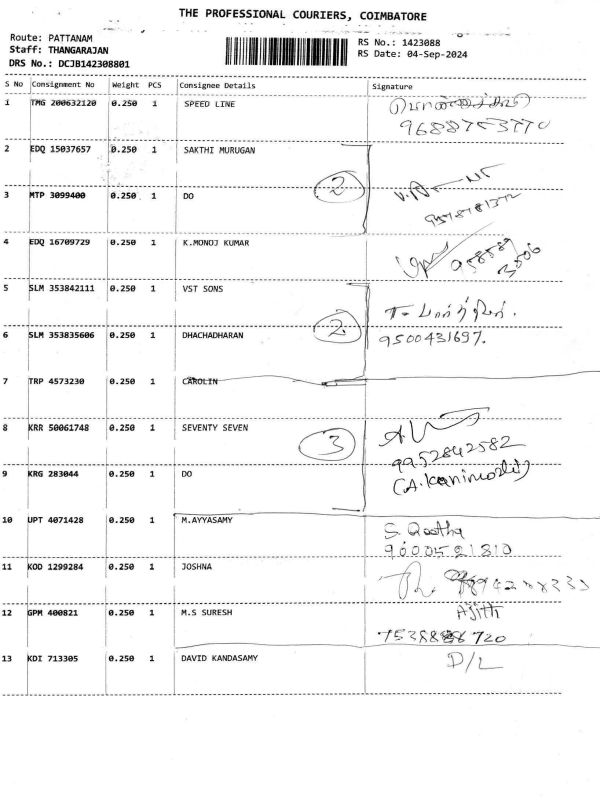 THE PROFESSIONAL COURIERS, COIMBATORE
Route: PATTANAM
Staff: THANGARAJAN
DRS No.: DCJB142308801
RS No.: 1423088
RS Date: 04-Sep-2024
S No Consignment No Weight PCS Consignee Details Signature
1 TMG 200632120 0.250 1 SPEED LINE
2 EDQ 15037657 0.250 1 SAKTHI MURUGAN
2
3 MTP 3099400 0.250 1 DO
4 EDQ 16709729 0.250 1 K.MONOJ KUMAR
5 SLM 353842111 0.250 1 VST SONS
2
6 SLM 353835606 0.250 1 DHACHADHARAN 9500431697.
7 TRP 4573230 0.250 1 CAROLIN
8 KRR 50061748 0.250 1 SEVENTY SEVEN
3 9952842582
9 KRG 283044 0.250 1 DO
10 UPT 4071428 0.250 1 M.AYYASAMY
9000521810
11 KOD 1299284 0.250 1 JOSHNA
12 GPM 400821 0.250 1 M.S SURESH Ajith
13 KDI 713305 0.250 1 DAVID KANDASAMY D/L